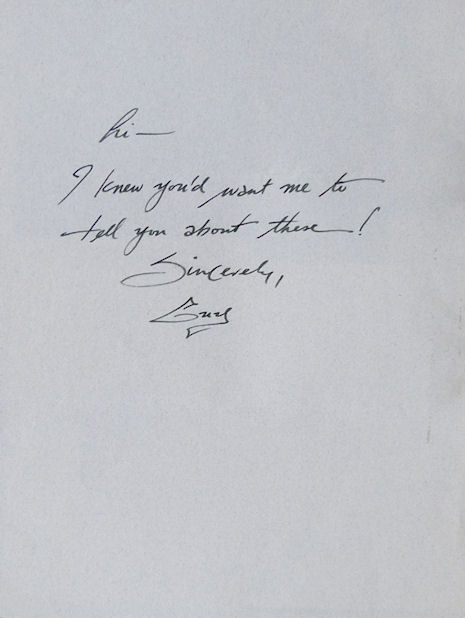 hi—
I knew you'd want me to
tell you about these!
Sincerely,